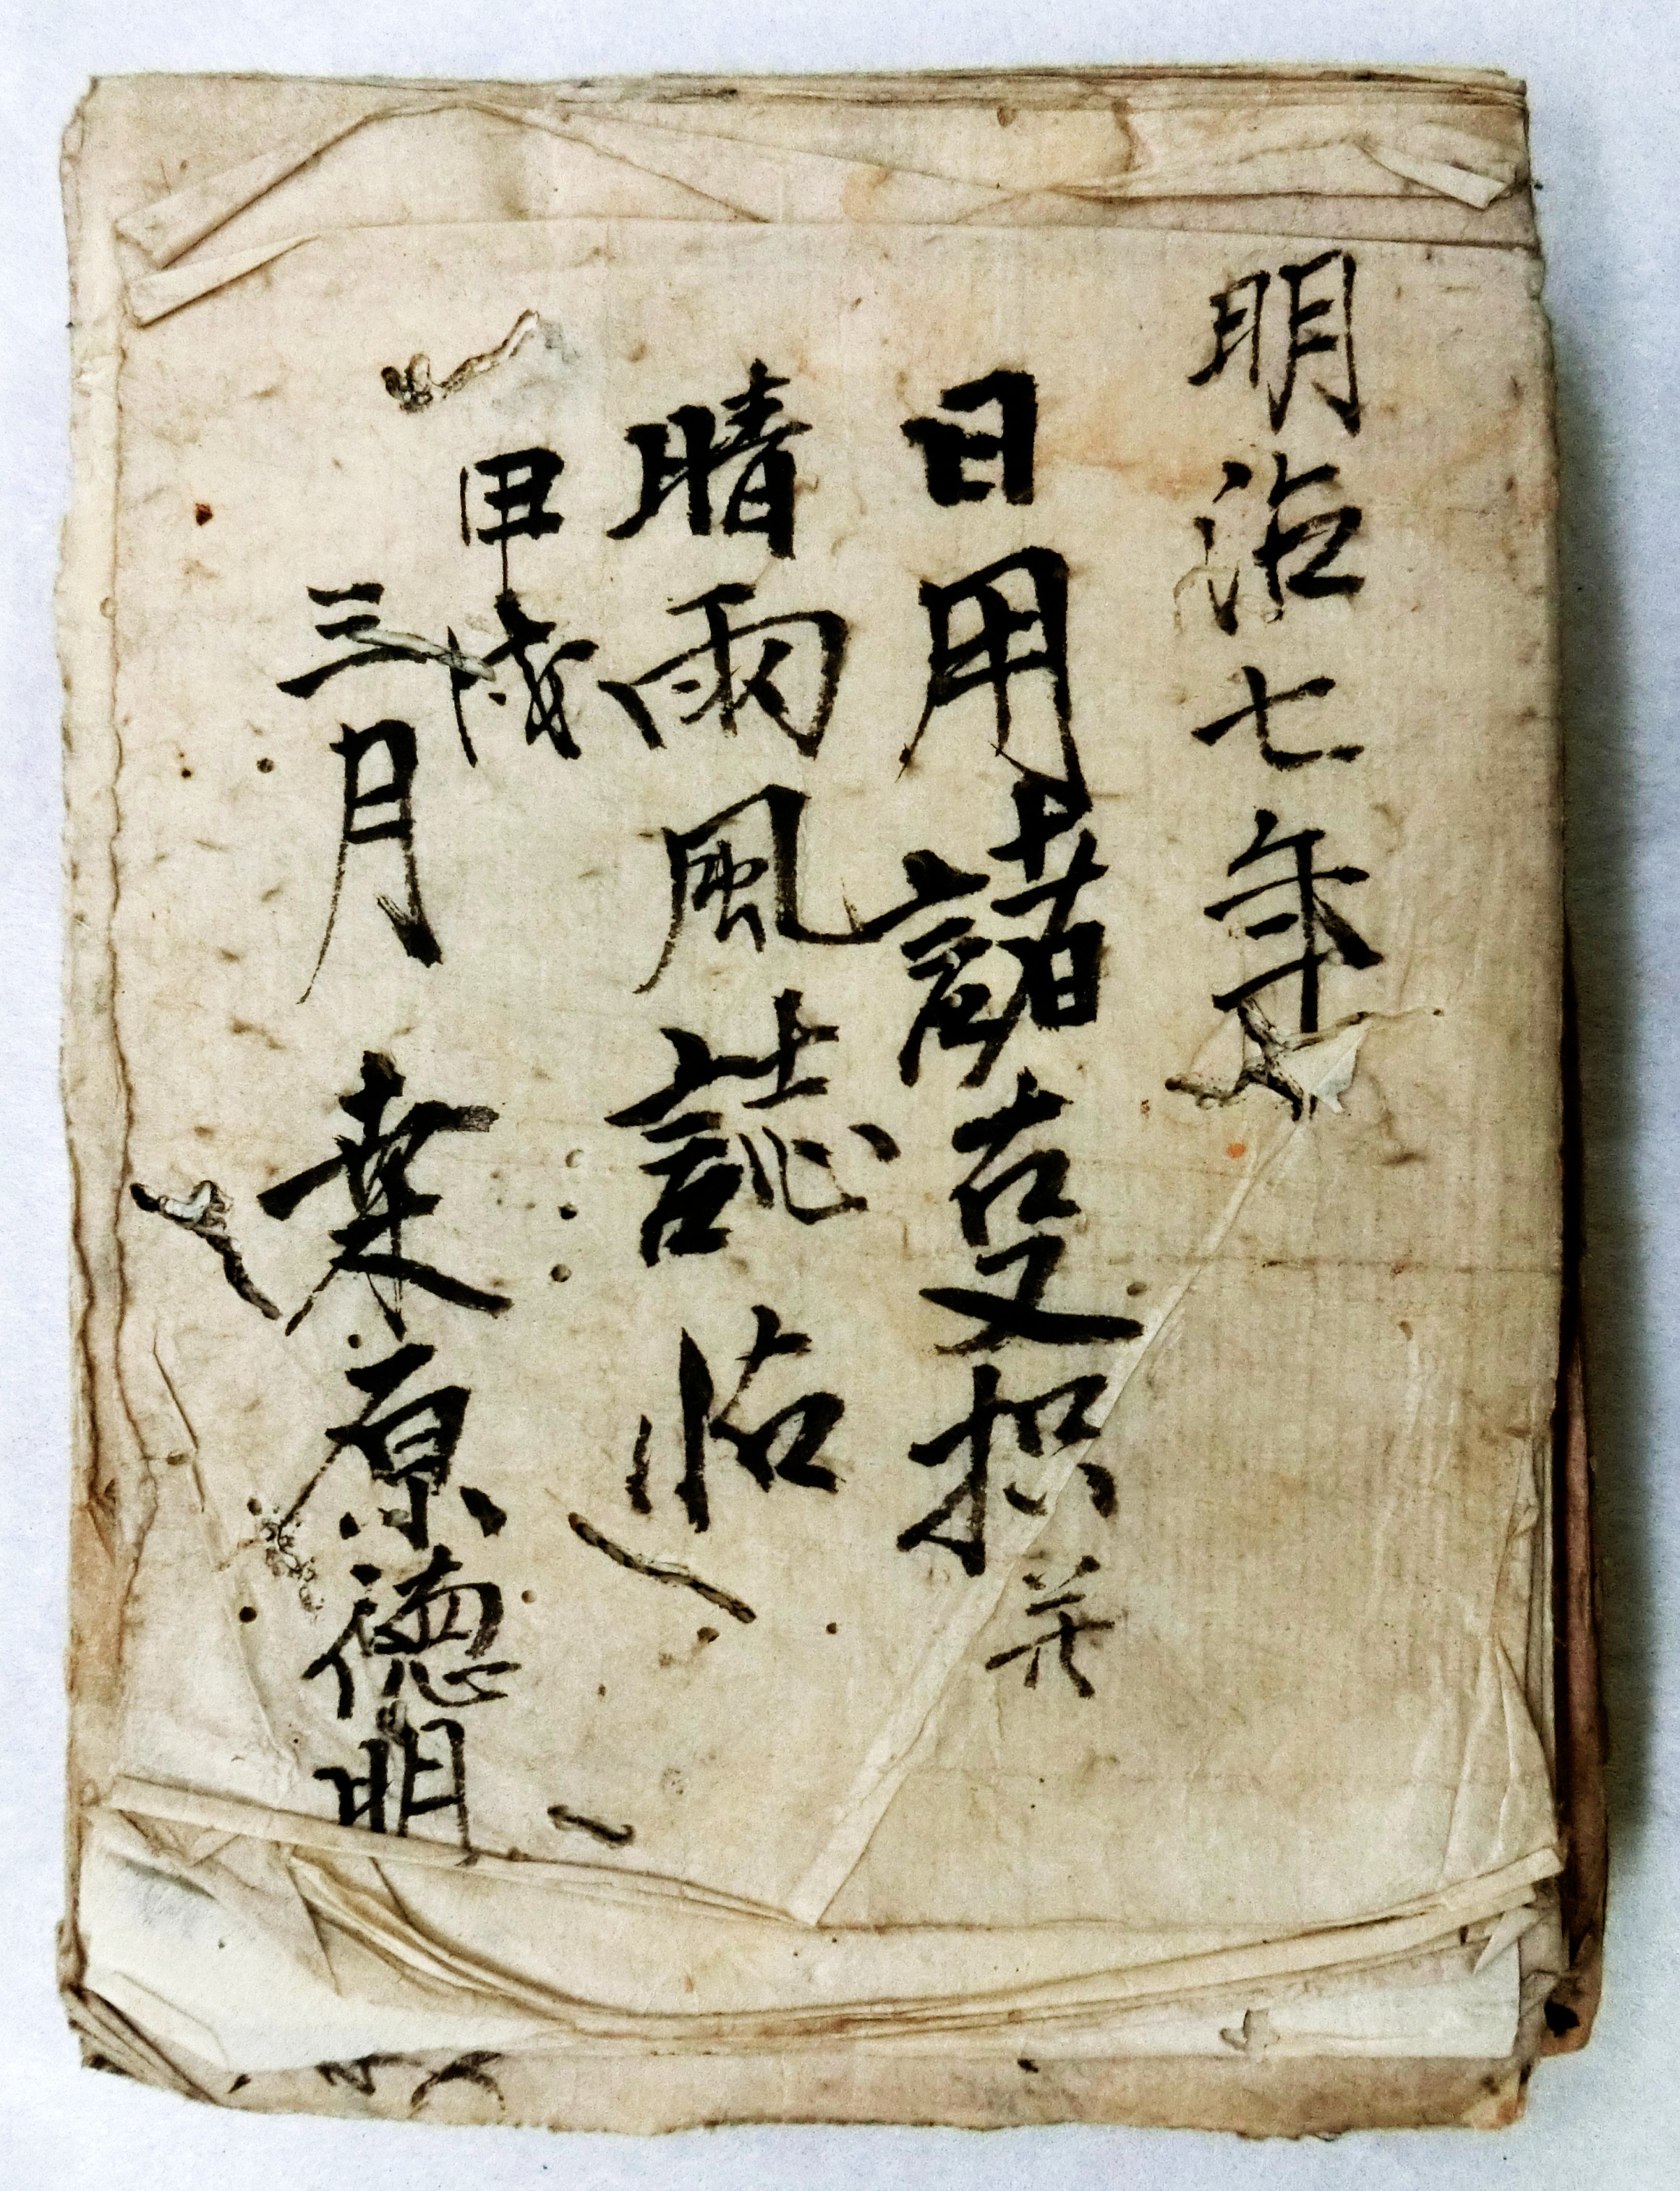 明治七年
日用諸叓并
晴雨風誌帖
甲戌
三月 桒原德明